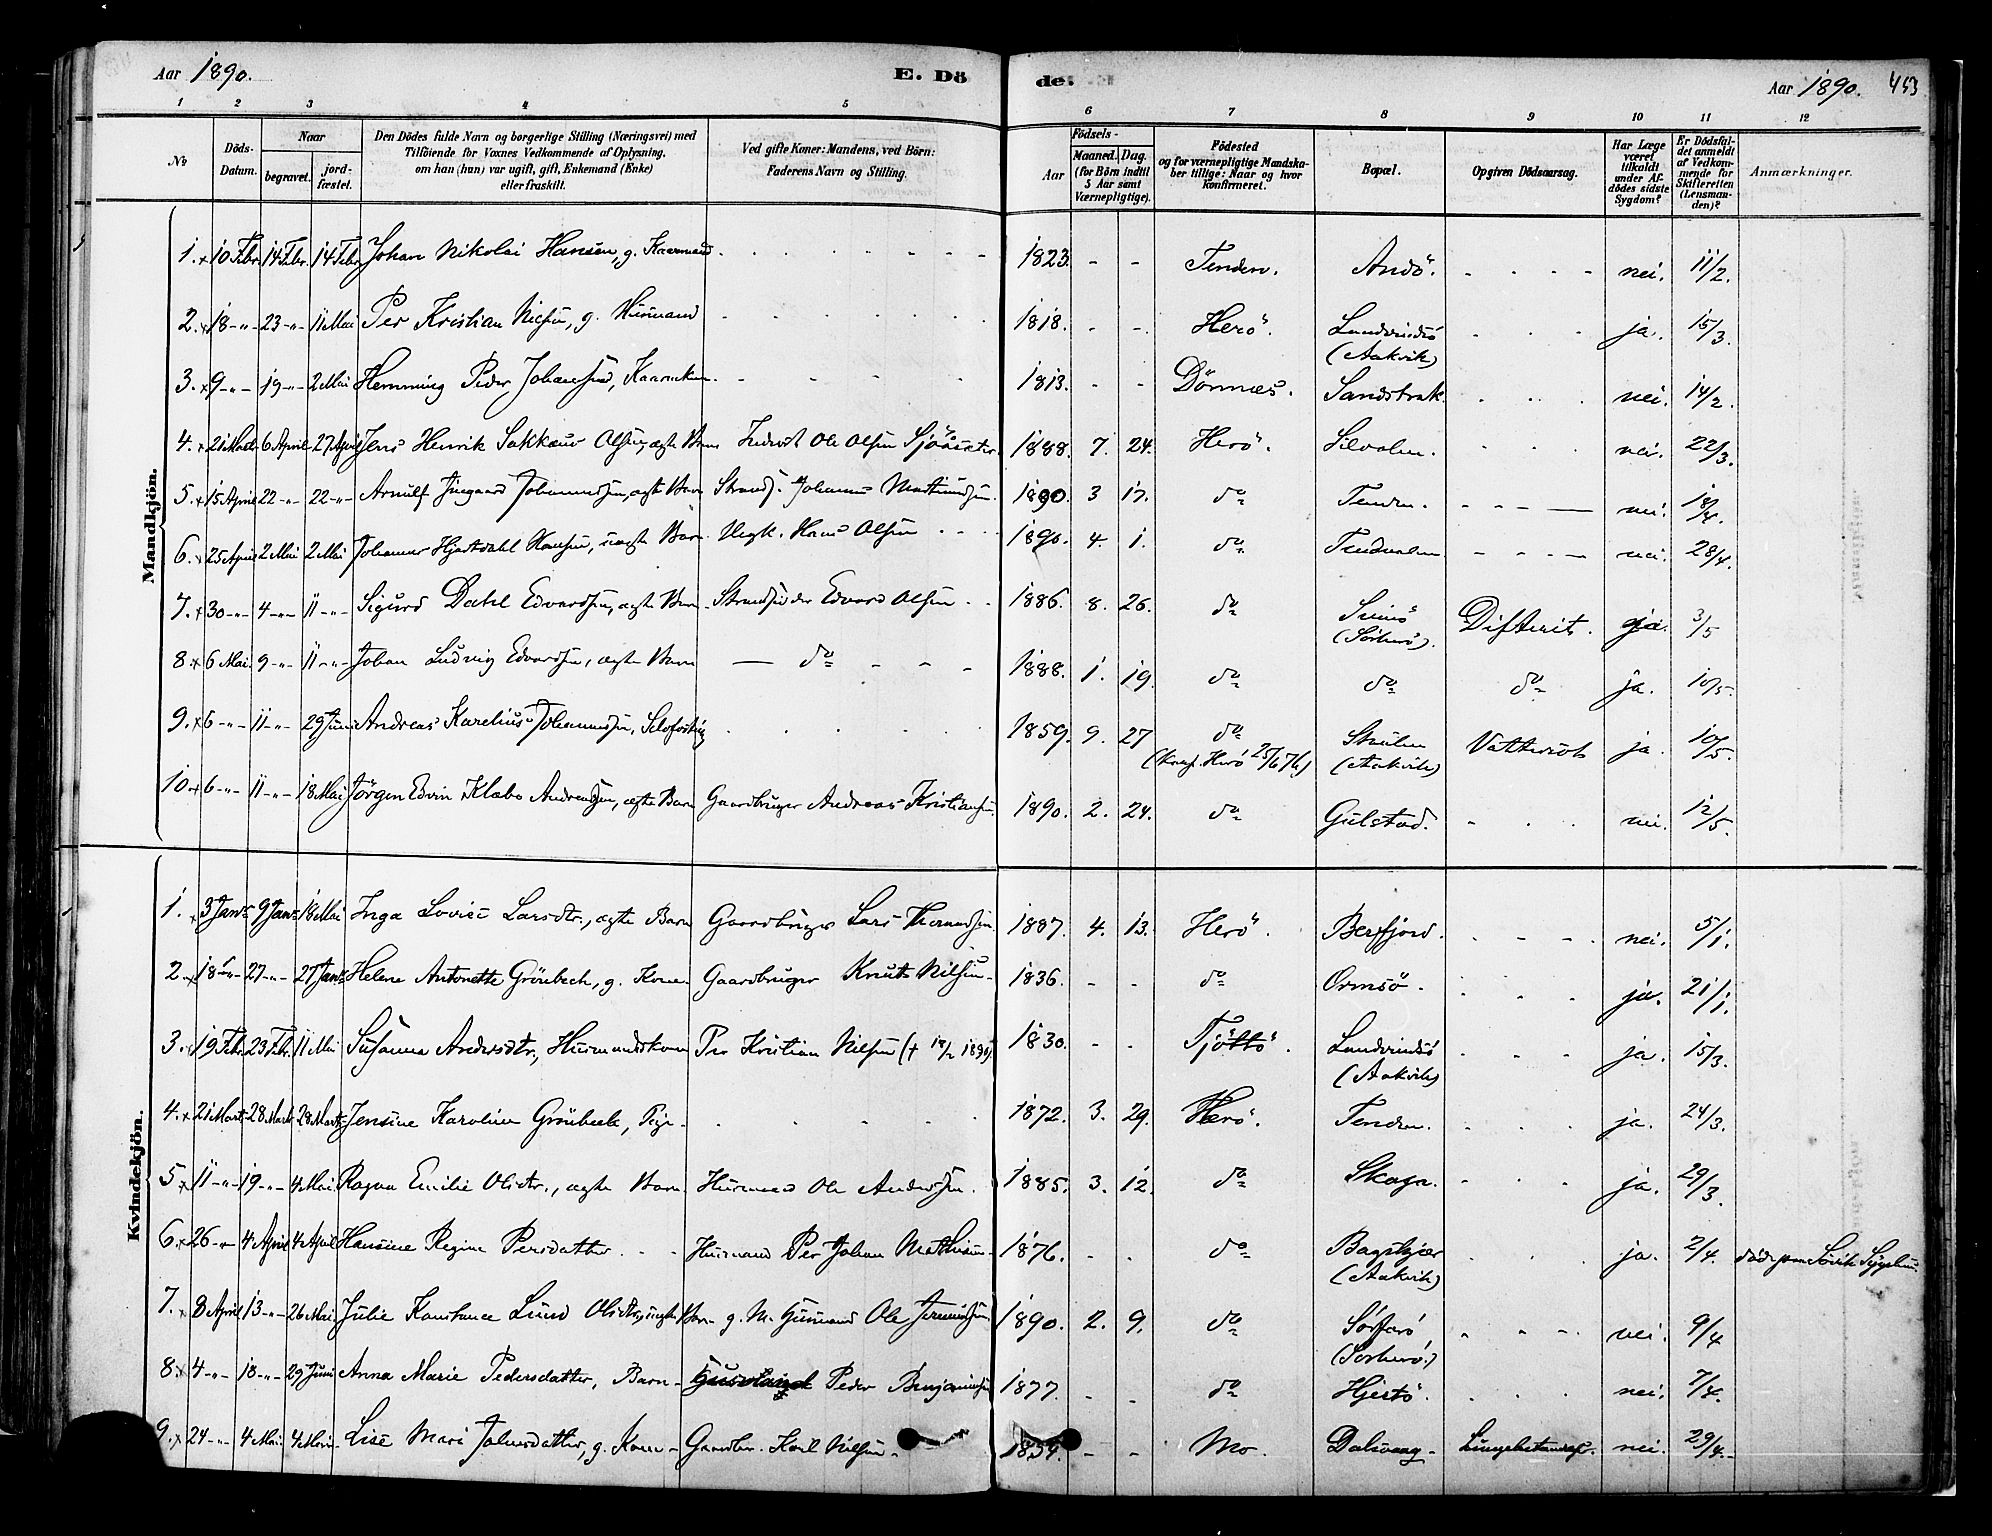 Aar 1890. E. Dö de. Aar 1890. 453
1 2 3 4 5 6 7 8 9 10 11 12
No Döds-Datum. Naar begravet. jord-fæstet. Den Dödes fulde Navn og borgerlige Stilling (Næringsvei) med Tilföiende for Voxnes Vedkommende af Oplysning, om han (hun) var ugift, gift, Enkemand (Enke) eller fraskilt. Ved gifte Koner: Mandens, ved Börn: Faderens Navn og Stilling. Födsels- Aar Maaned. Dag. (for Börn indtil 5 Aar samt Værnepligtige). Födested og for værnepligtige Mandskaber tillige: Naar og hvor konfirmeret. Bopæl. Opgiven Dödsaarsag. Har Læge været tilkaldt under Afdödes sidste Sygdom? Er Dödsfaldet anmeldt af Vedkommende for Skifteretten (Lensmanden)? Anmærkninger.
Mandkjön.
1. 10 Febr. 14 Febr. 14 Febr. Johan Nikolai Hansen, g. Kaarmand 1823. - - Tenden. Andö. nei. 11/2.
2. 18 -"- 23 -"- 11 Mai Per Kristian Nielsen, g. Husmand 1818. - - Herö. (Aakvik) ja. 15/3.
3. 9 -"- 19 -"- 2 Mai Hemming Peder Johansen, 1813. - - Dönnæs. Sandstrak. nei. 14/2.
4. 21 Marts 6 April 27 April Jens Henrik Olsen, ægte Barn Inderst Ole Olsen 1888. 7. 24. Herö. Silvalen. nei. 22/3.
5. 15 April 22 -"- 22 -"- Arnulf Johannessen, ægte Barn Strands. Johannes 1890. 3 17. do Tenden. nei. 18/4.
6. 25 April 2 Mai 2 Mai Johannes Hjortdahl Hansen, uægte Barn Ungk. Hans Olsen 1890. 4. 1. do nei. 28/4.
7. 30 -"- 4 -"- 11 -"- Sigurd Dahl Edvardsen, ægte Barn Strandsidder Edvard Olsen 1886. 8. 26. do (Sörherö). Difterit. ja. 3/5
8 6 Mai 9 -"- 11 -"- Johan Ludvig Edvardsen, ægte Barn do 1888. 1. 19. do do do ja. 10/5.
9. 6 -"- 11 -"- 29 Juni Andreas Karelius Johannessen, 1859. 9. 27 do (Konf. Herö (Aakvik) Vattersot ja 10/5.
10. 6 -"- 11 -"- 18 Mai Jörgen Edvin Klæbo Andreassen, ægte Barn Gaardbruger Andreas Kristiansen. 1890. 2. 24. do Gulstad. nei. 12/5.
Kvindekjön.
1. 3 Janr. 9 Janr. 18 Mai Inga Lovise Larsdtr., ægte Barn Gaardbruger Lars 1887. 4. 13. Herö. Berfjord. nei. 5/1.
2 18 -"- 27 -"- 27 Janr. Helene Antonette Grönbech, g. Kone Gaardbruger Knut Nilsen 1836. - - do Ormsö. ja. 21/1.
3. 19 Febr. 23 Febr. 11 Mai Susanna Andersdtr., Husmandskone Per Kristian Nilsen († 18/2 1890) 1830. - - Tjöttö. (Aakvik) ja. 15/3.
4. 21 Marts 28 Marts 28 Marts Jensine Karoline Grönbech, Pige 1872. 3. 29. Herö. Tenden. ja. 24/3.
5 11 -"- 19 -"- 4 Mai Ragna Emilie Olsdtr., ægte Barn Husmand Ole Andersen. 1885. 3. 12. do Skaga. ja. 29/3.
6. 26 -"- 4 April 4 April Hansine Regine Persdatter Husmand Per Johan Mathisen 1876. - - do (Aakvik) ja. 2/4.
7. 8 April 13 -"- 26 Mai Julie Konstance Lund Olsdtr, uægte Barn g. M. Husmand Ole 1890. 2. 9. do Sörfarö (Sörherö.) nei. 9/4
8. 4 -"- 18 -"- 29 Juni Anna Marie Pedersdatter, Barn Peder Benjaminsen 1877. - do Hjertö. nei. 7/4.
9. 24 -"- 4 Mai. 4 Mai Lise Mari g. Kone Gaardbr. Karl Nilsen 1854. - - Mo. Dalsvaag nei. 29/4.